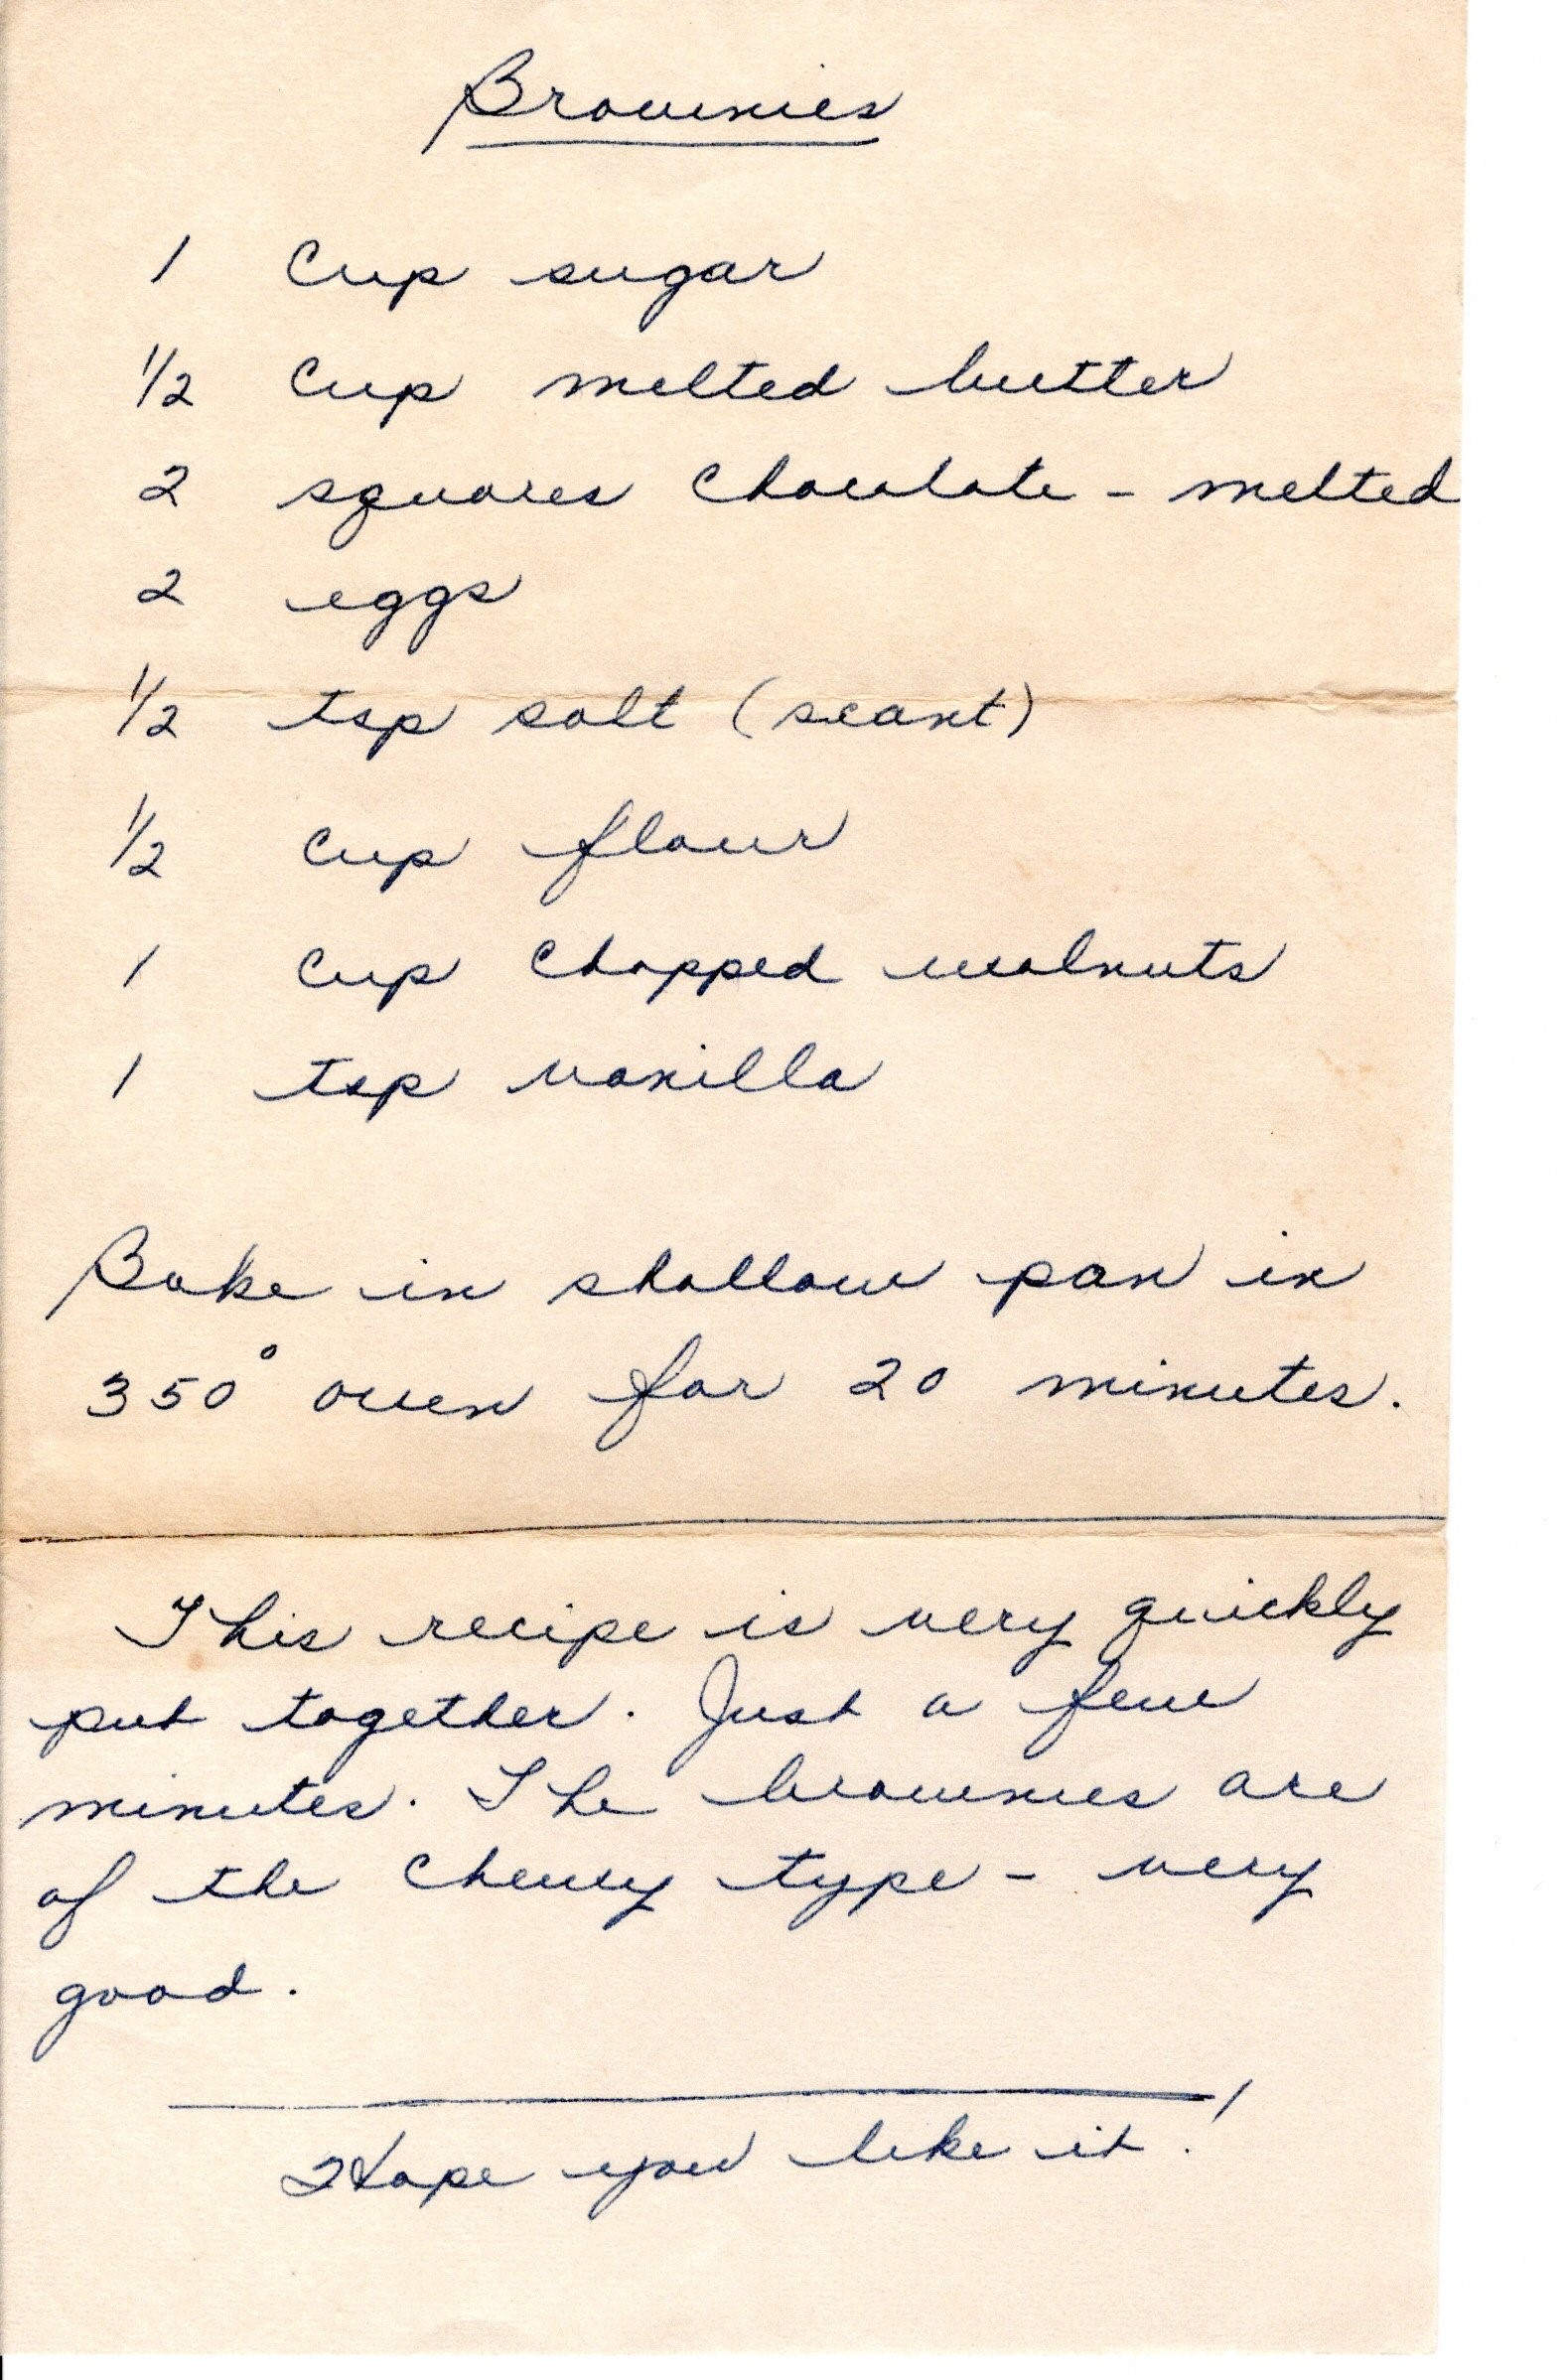 Brownies
1 Cup sugar
1/2 Cup melted butter
2 squares Chocolate - melted
2 eggs
1/2 tsp salt (scant)
1/2 Cup flour
1 Cup Chopped walnuts
1 tsp vanilla
Bake in shallow pan in
350° oven for 20 minutes.
This recipe is very quickly
put together. Just a few
minutes. The brownies are
of the Chewy type - very
good.
Hope you like it!